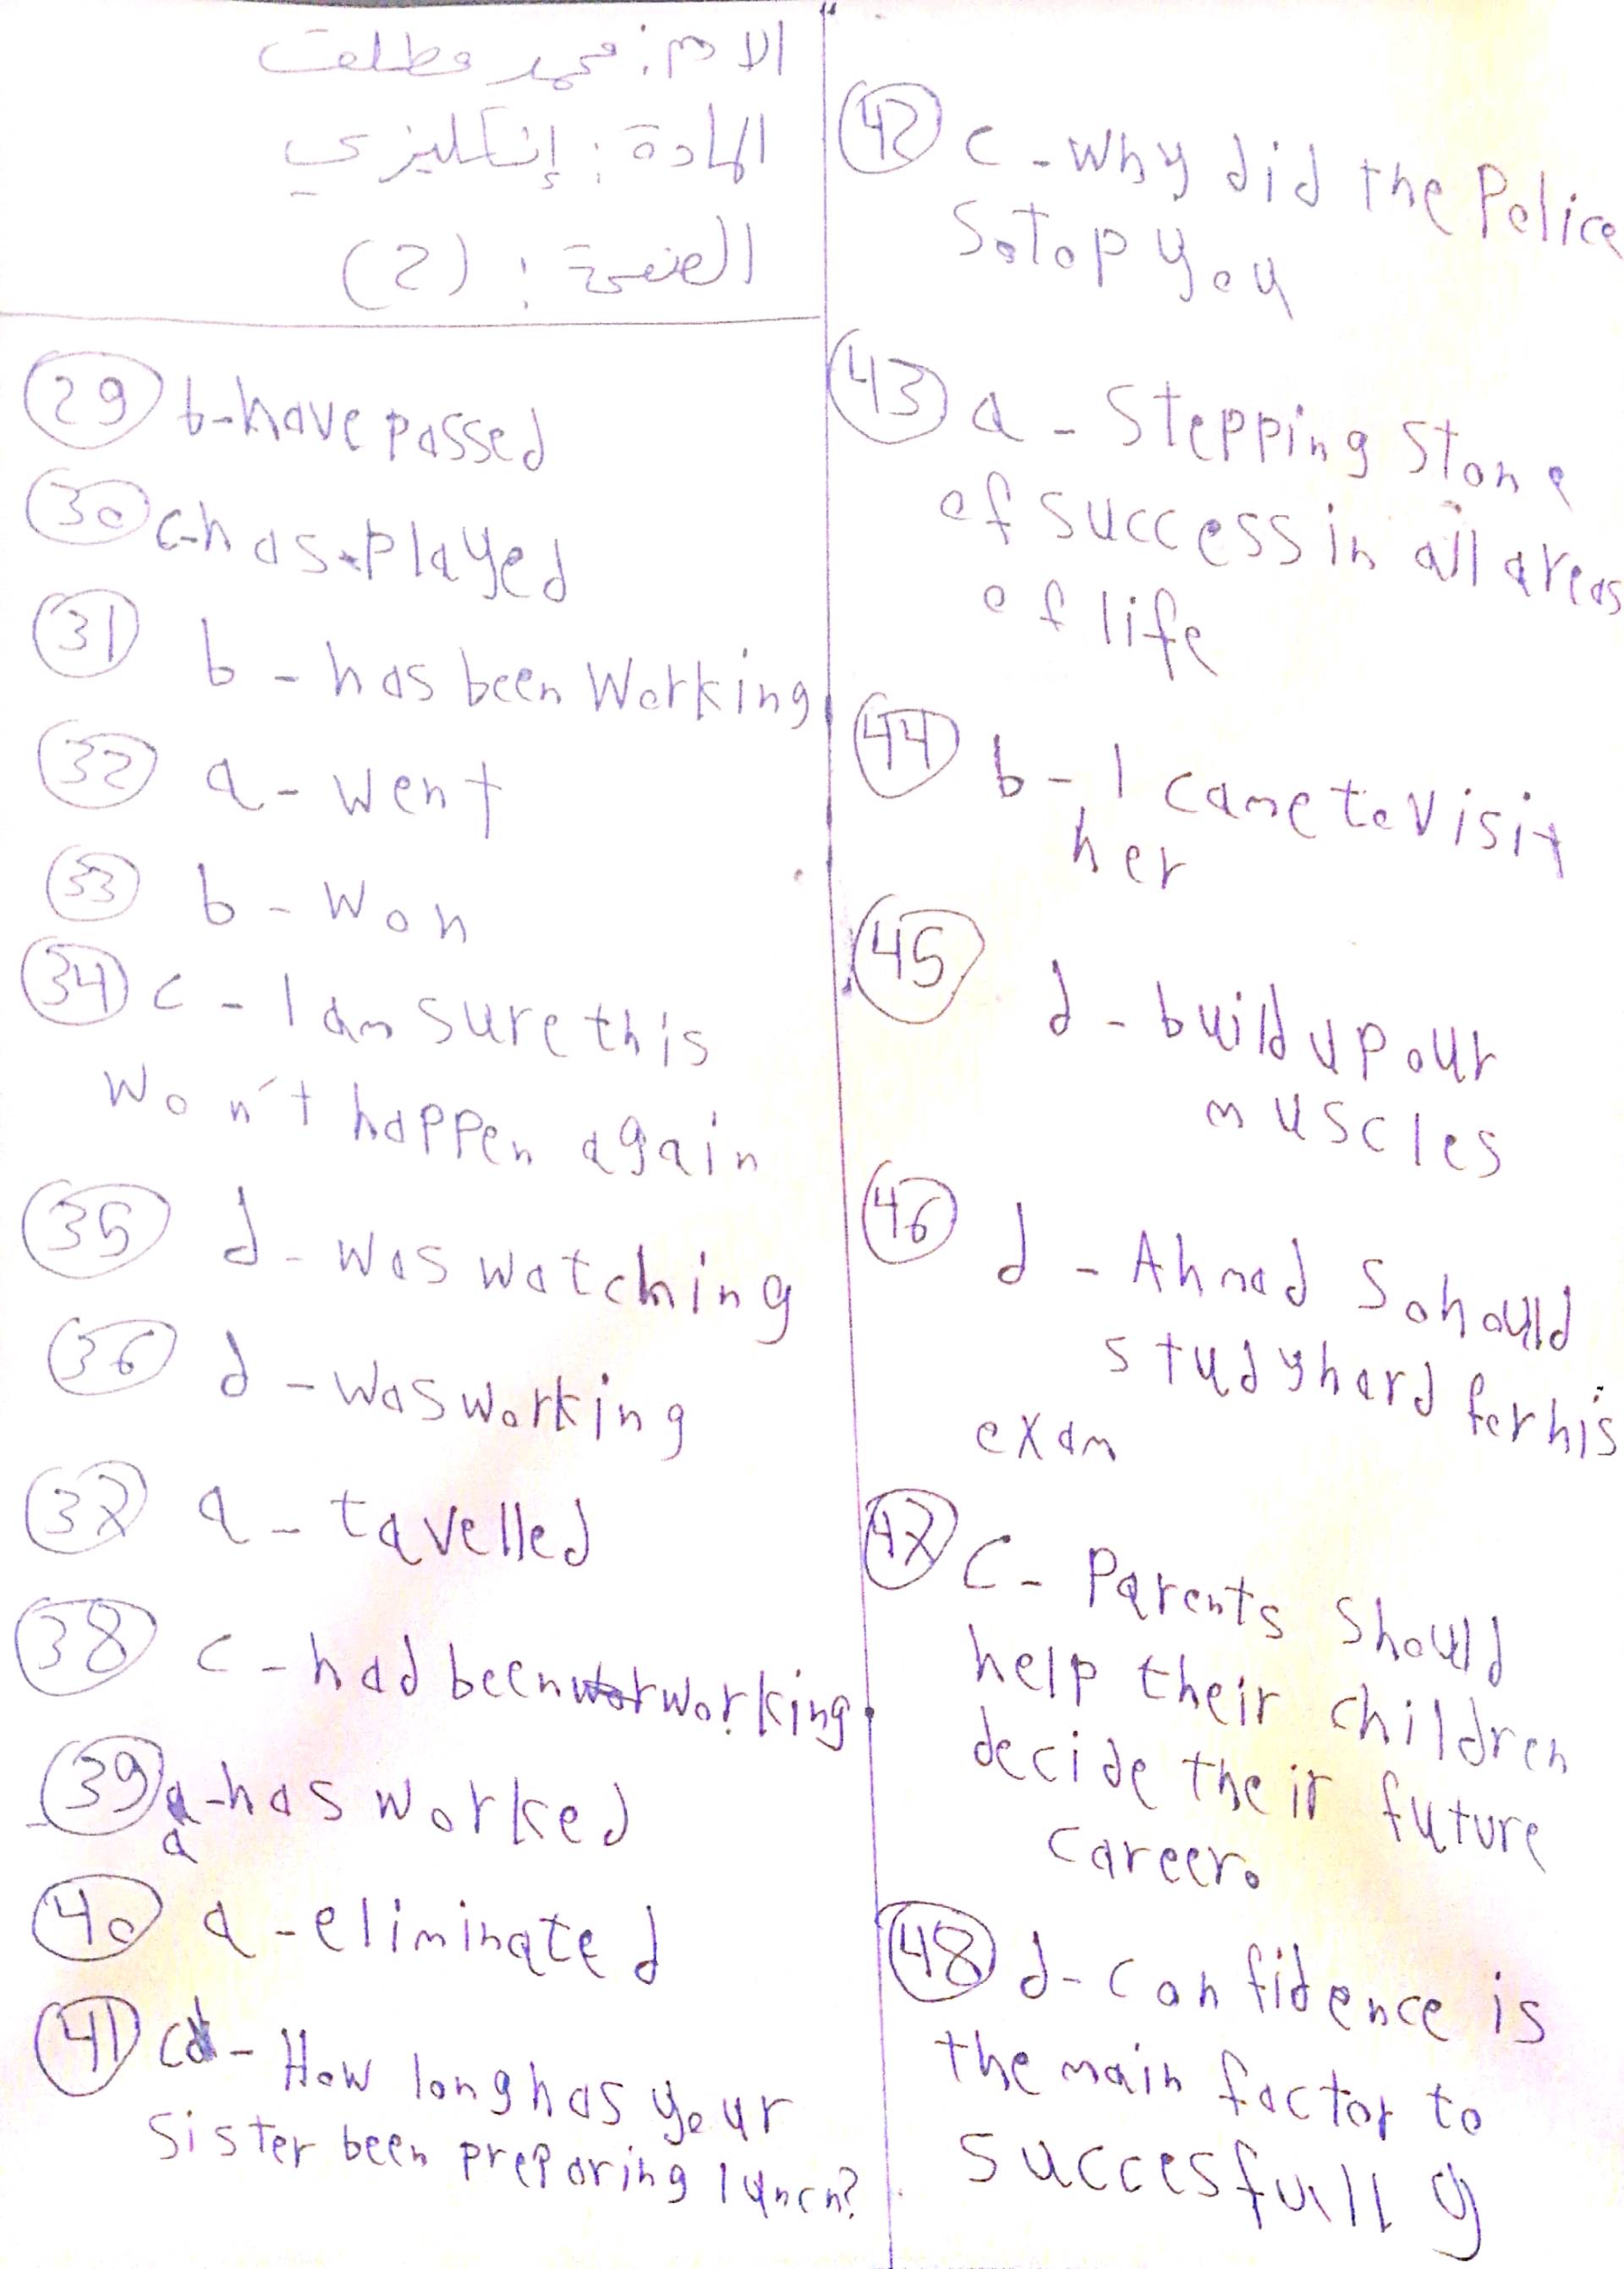 الاسم: محمد طلعت
المادة: إنكليزي
الصفحة: (2)
29 b-have passed
30 c-has played
31 b - has been Working
32 a - went
33 b - won
34 c - I am sure this
won't happen again
35 d - was watching
36 d - was working
37 a - tavelled
38 c - had been working
39 a-has worked
40 a - eliminated
41 c - How long has your
Sister been preparing lunch?
42 c - Why did the Police
Stop you
43 a - Stepping Stone
of success in all areas
of life
44 b - I came to visit
her
45 d - build up our
muscles
46 d - Ahmad Sohould
study hard for his
exam
47 C - Parents Should
help their children
decide their future
career.
48 d - Confidence is
the main factor to
succesfully